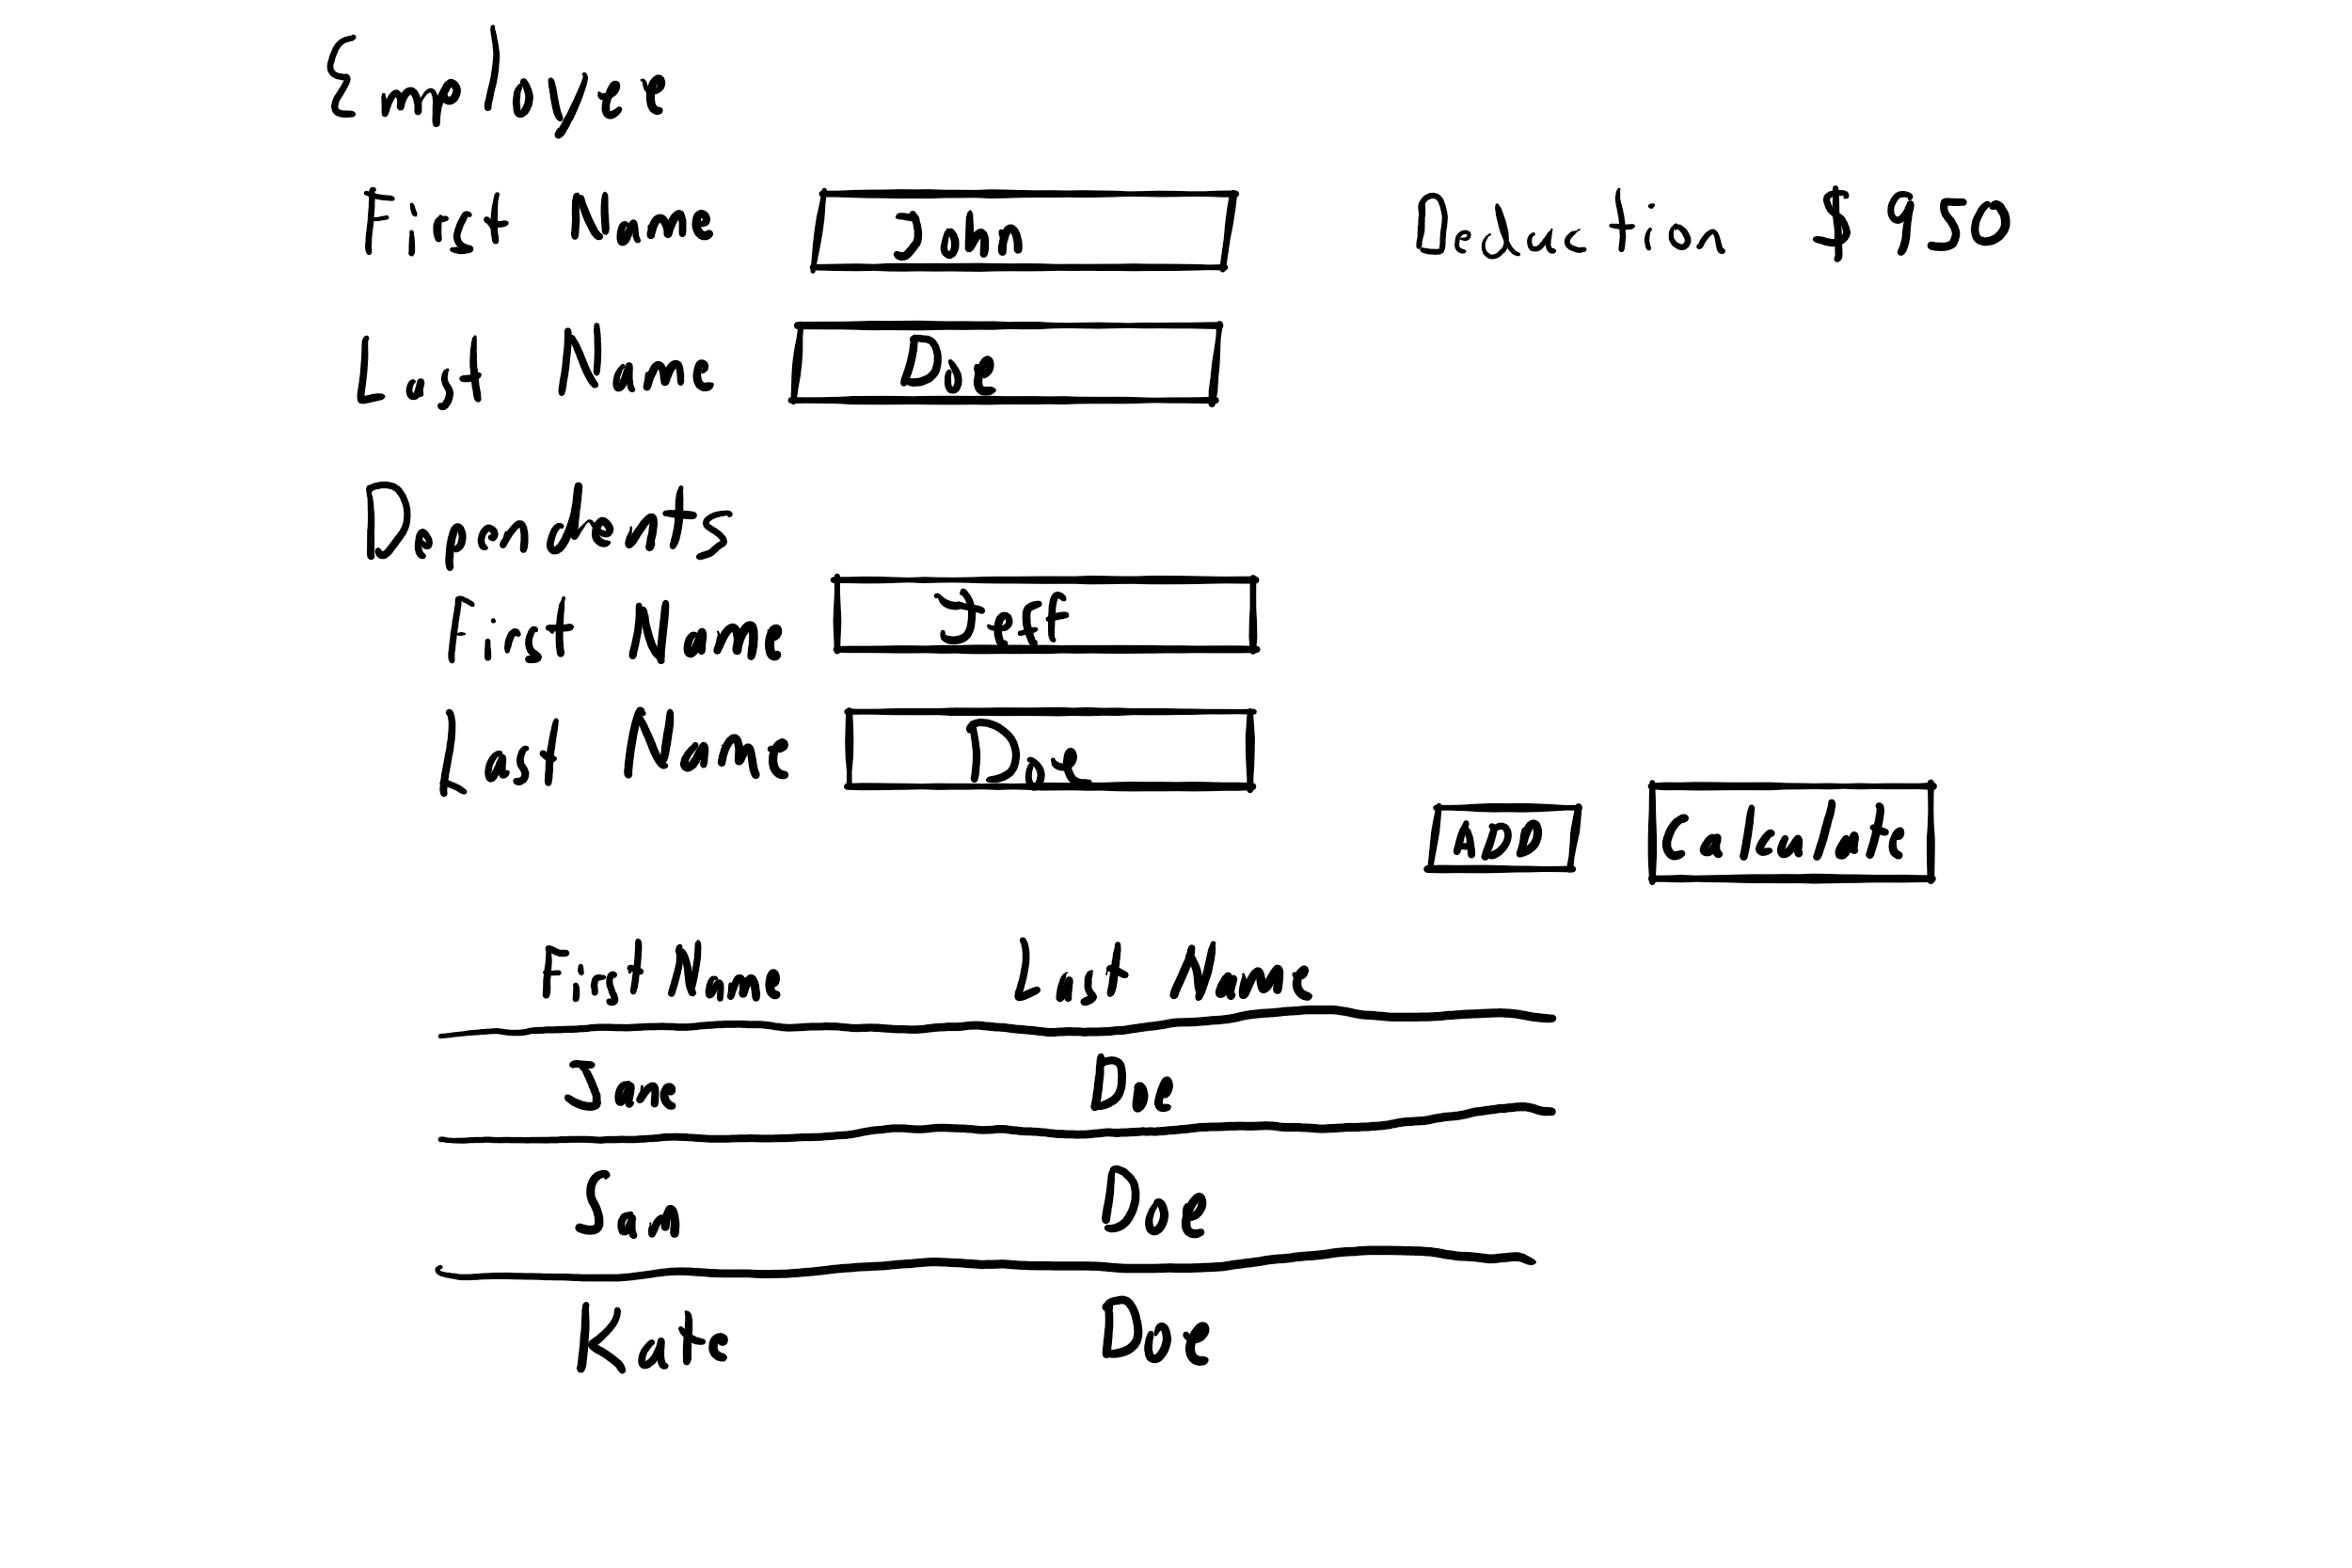 Employee
First Name John Deduction $950
Last Name Doe
Dependents
First Name Jeff
Last Name Doe
ADD Calculate
First Name Last Name
Jane Doe
Sam Doe
Kate Doe